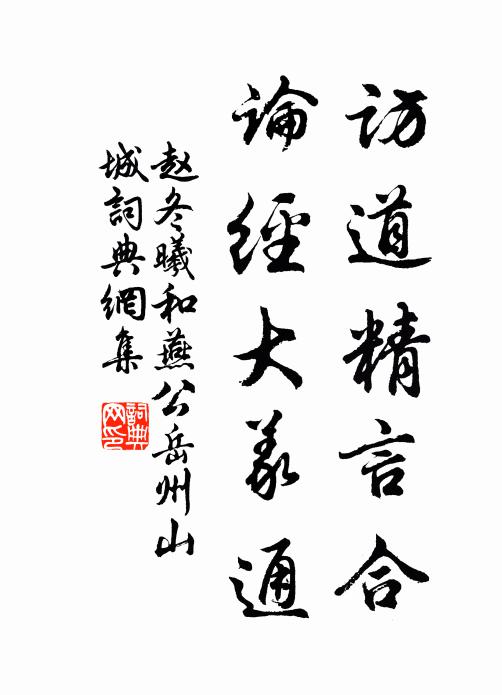 訪道精言合
論經大義通
赵冬曦和燕公岳州山
城詞典網集
詞典
网印